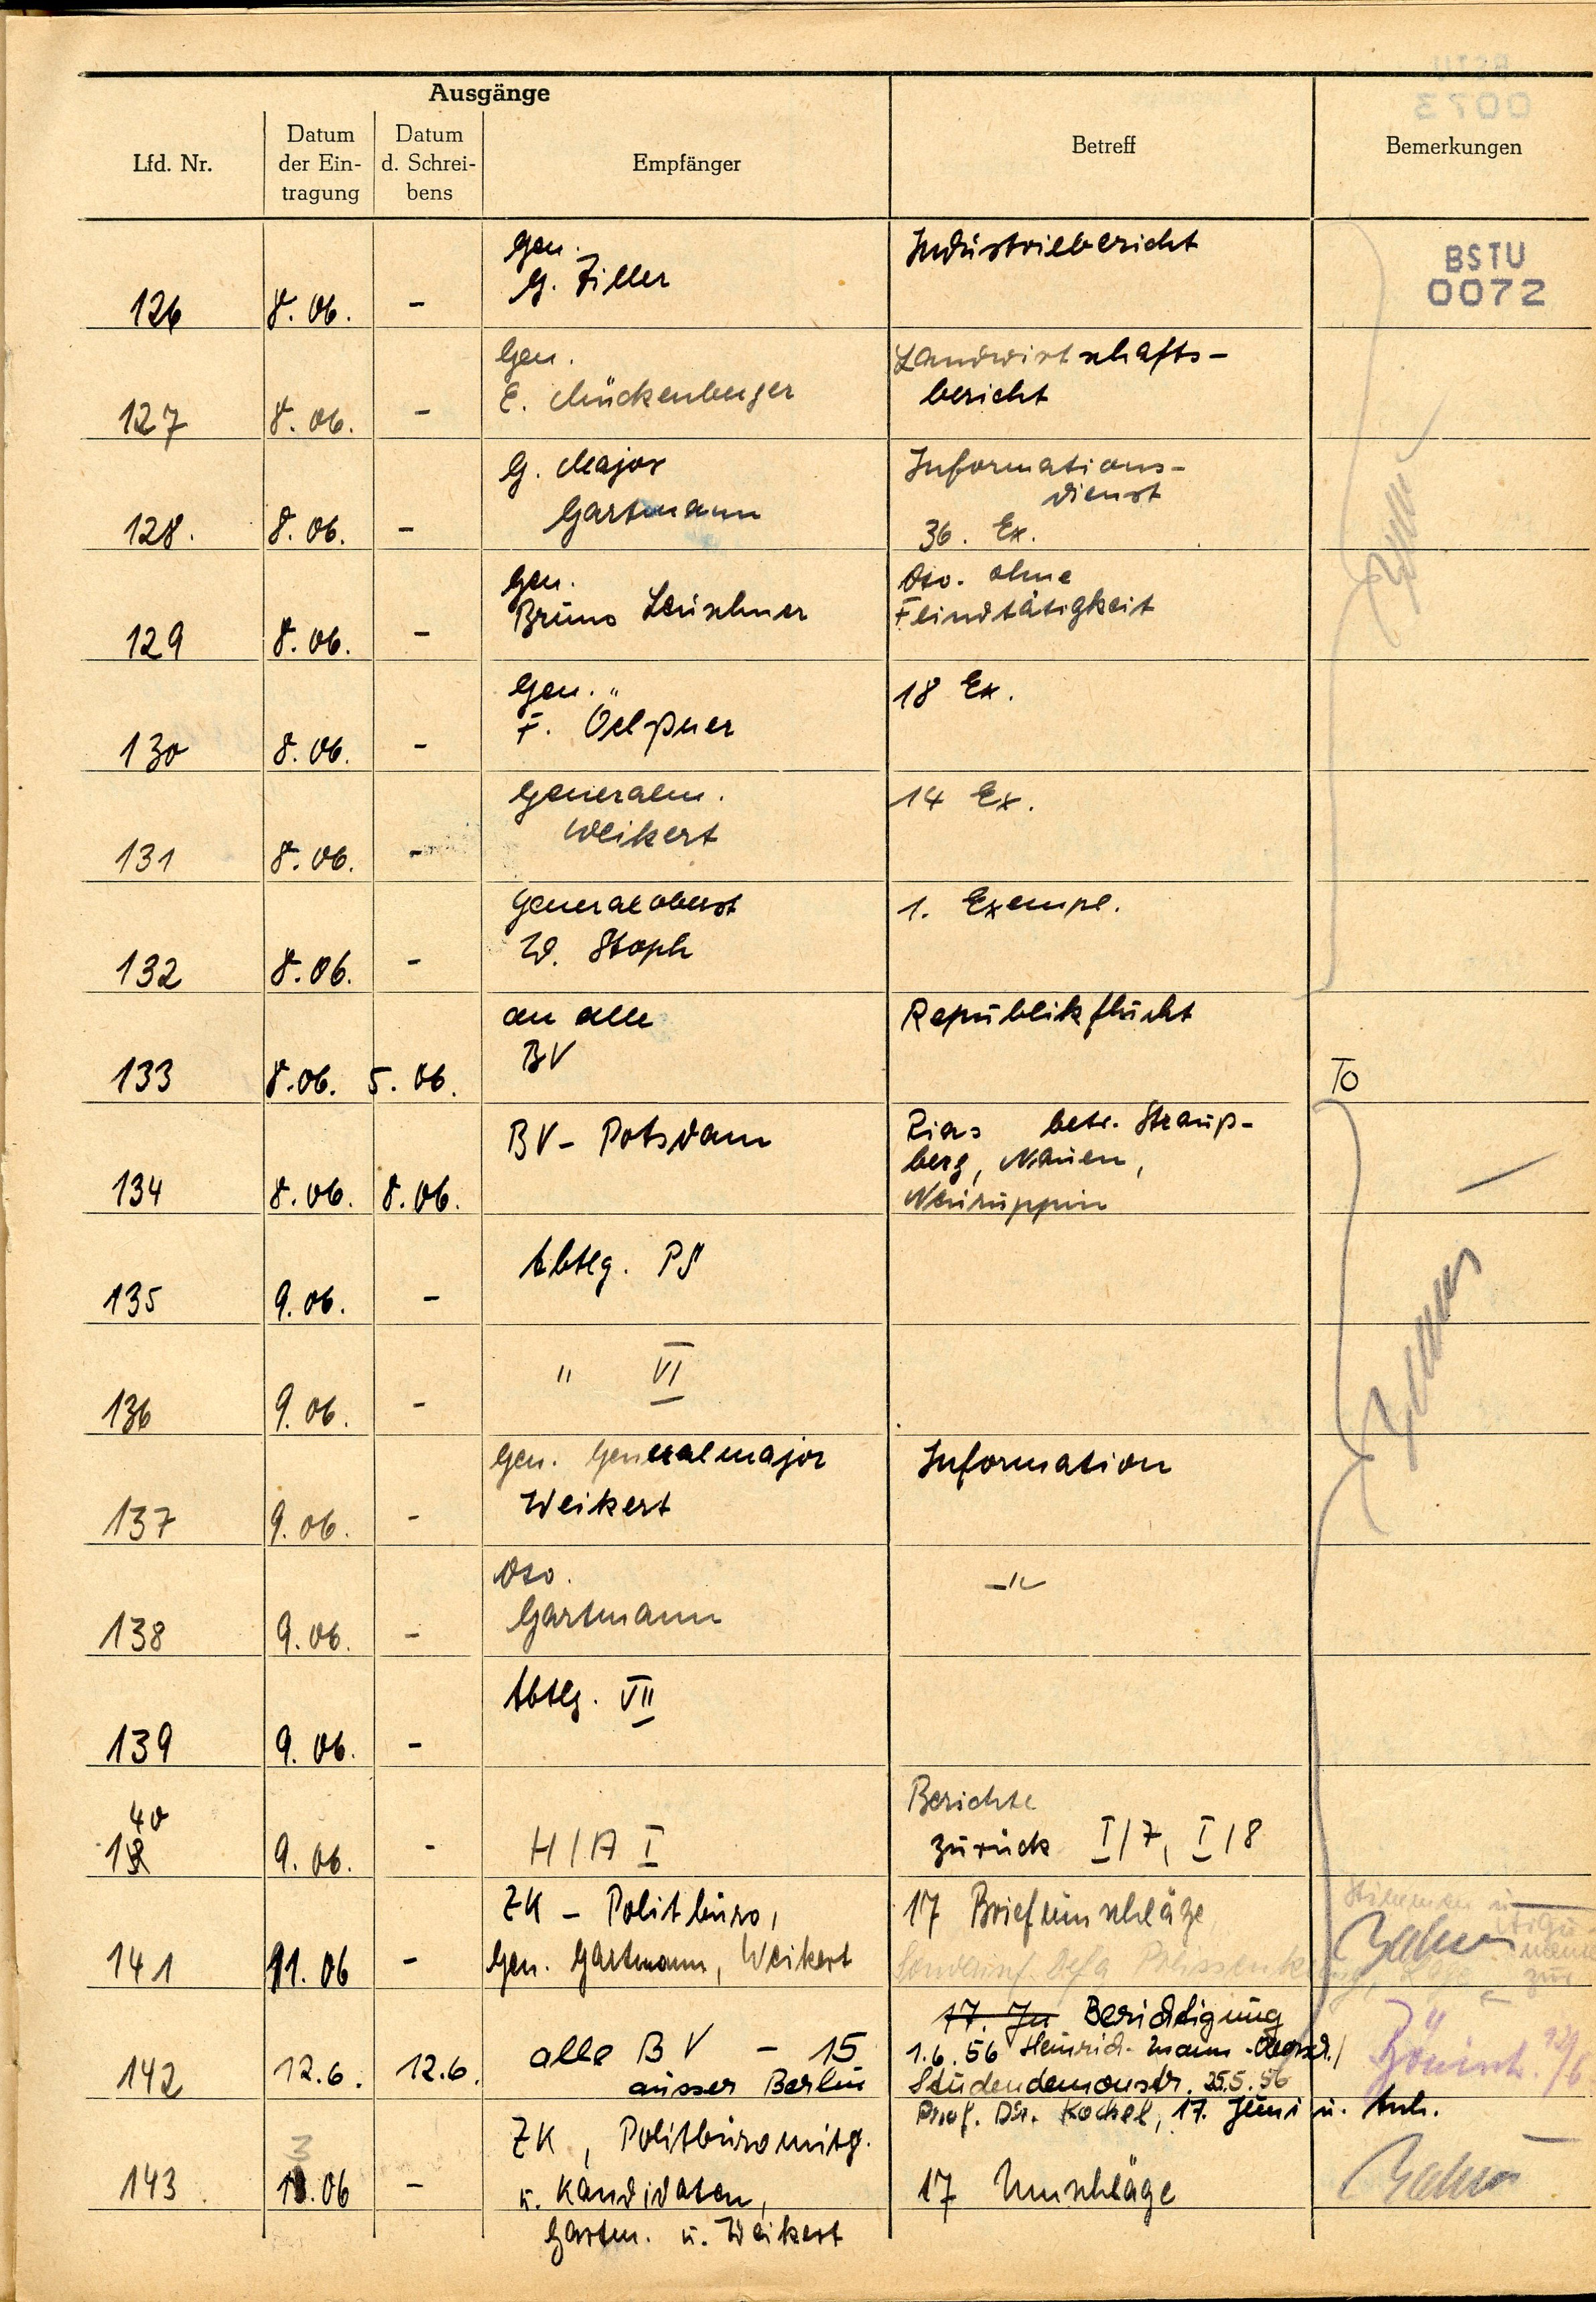 Ausgänge
Lfd. Nr.
Datum
der Ein-
tragung
Datum
d. Schrei-
bens
Empfänger
Betreff
Bemerkungen
BSTU
0072
126 8. 06. - Gen. G. Ziller Industriebericht
127 8. 06. - Gen. E. Mückenberger Landwirtschafts-
bericht
128. 8. 06. - G. Major Gartmann Informations-
dienst
36. Ex.
129 8. 06. - Gen. Bruno Leuschner Dto. ohne
Feindtätigkeit
130 8. 06. - Gen. F. Oelßner 18 Ex.
131 8. 06. - Generalm. Weikert 14 Ex.
132 8. 06. - Generaloberst W. Stoph 1. Exempl.
133 8. 06. 5. 06. an alle BV Republikflucht To
134 8. 06. 8. 06. BV - Potsdam Rias betr. Strauß-
berg, Nauen,
Neuruppin
135 9. 06. - Abtlg. PS
136 9. 06. - " VI
137 9. 06. - Gen. Generalmajor Weikert Information
138 9. 06. - Dto. Gartmann -"-
139 9. 06. - Abtlg. VII
140 9. 06. - H/A I Berichte
zurück I/7, I/8
141 11. 06 - ZK - Politbüro,
Gen. Gartmann, Weikert 17 Briefumschläge
142 12. 6. 12. 6. alle BV - 15
ausser Berlin 17. Ju Berichtigung
1. 6. 56 Heinrich-Mann-Obersch./
Studendemonstr. 25.5.56
Prof. Dr. Kockel, 17. Juni u. Anh.
12/6
143 13. 06 - ZK, Politbüromitg.
u. Kandidaten,
Gartm. u. Weikert 17 Umschläge